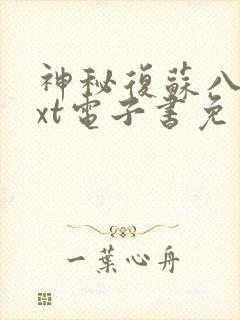 神秘復蘇八
xt電子書免
一葉心舟